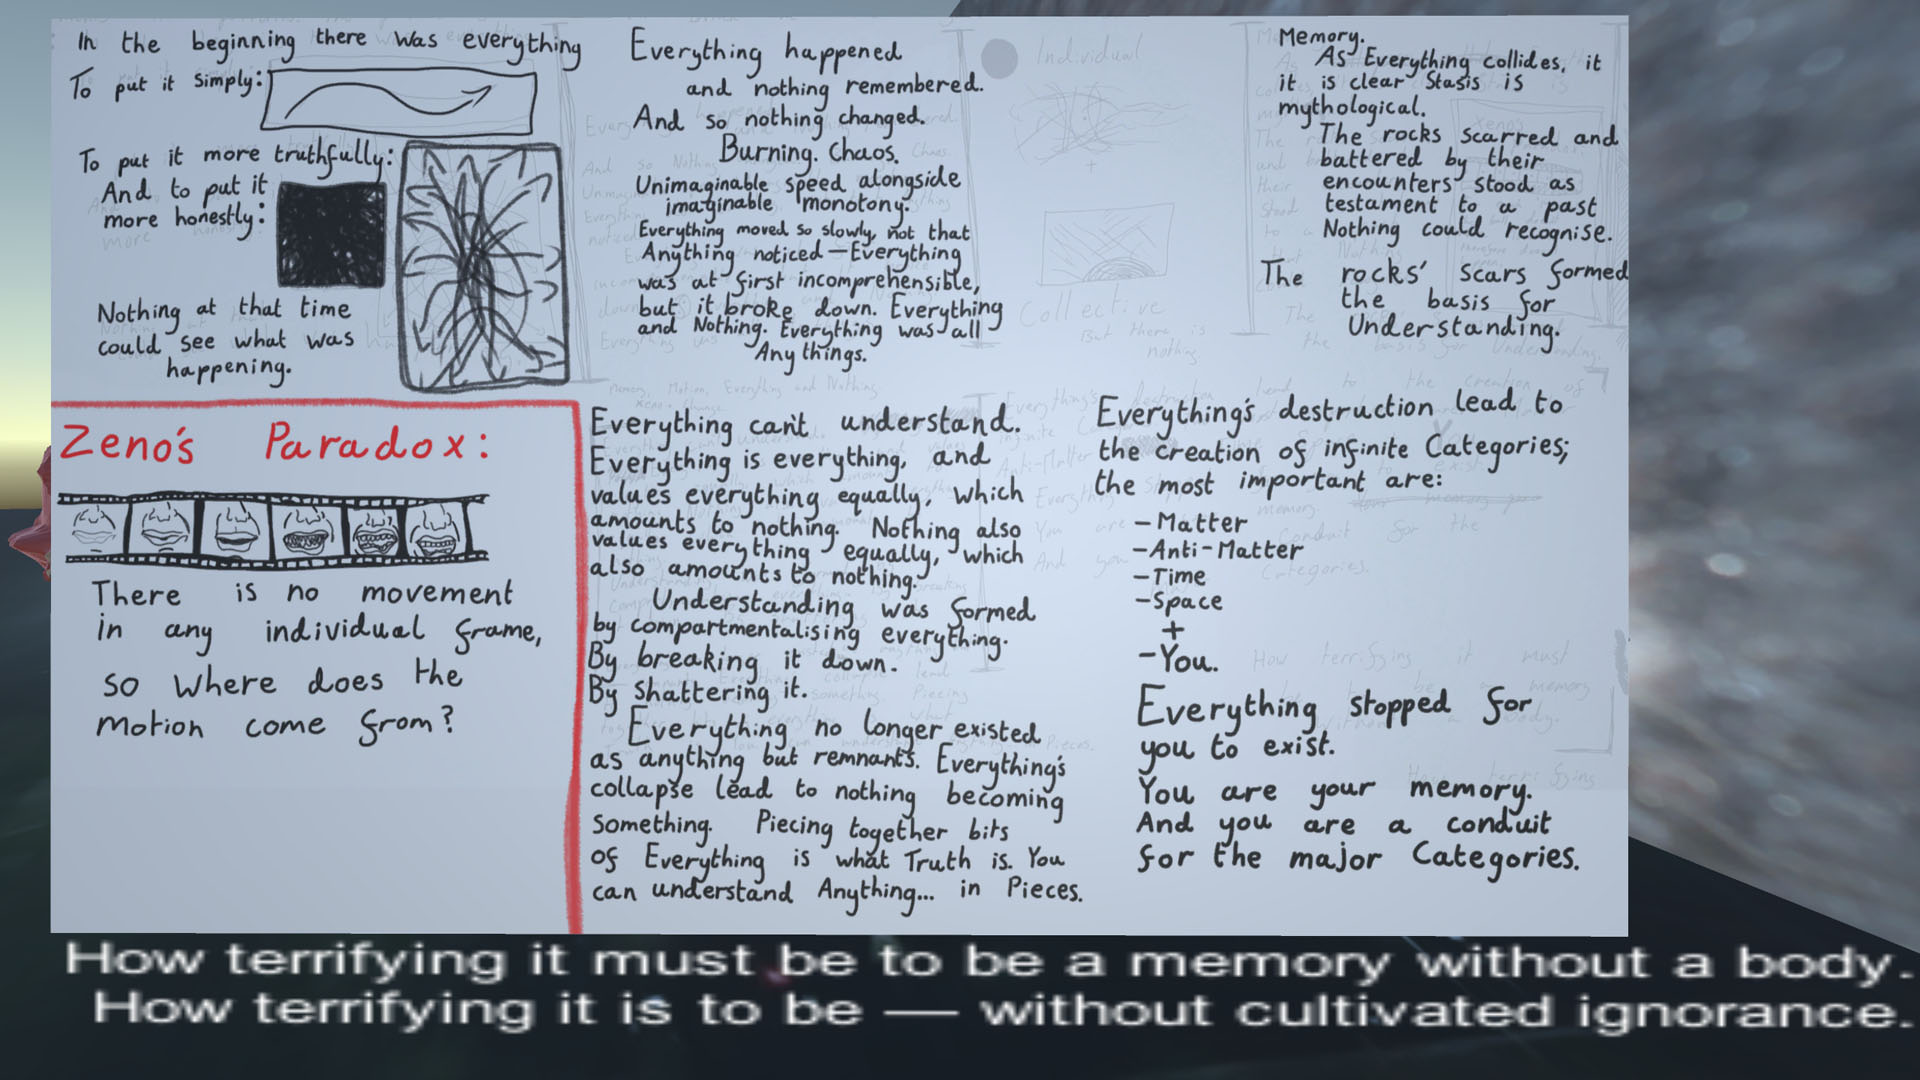 In the beginning there was everything
To put it simply:
To put it more truthfully:
And to put it
more honestly:
Nothing at that time
could see what was
happening.
Everything happened
and nothing remembered.
And so nothing changed.
Burning. Chaos.
Unimaginable speed alongside
imaginable monotony.
Everything moved so slowly, not that
Anything noticed — Everything
was at first incomprehensible,
but it broke down. Everything
and Nothing. Everything was all
Any things.
Individual
Collective
But there is
nothing
Memory.
As Everything collides, it
it is clear Stasis is
mythological.
The rocks scarred and
battered by their
encounters stood as
testament to a past
Nothing could recognise.
The rocks' scars formed
the basis for
Understanding.
Zeno's Paradox:
There is no movement
in any individual frame,
so where does the
motion come from?
Everything can't understand.
Everything is everything, and
values everything equally, which
amounts to nothing. Nothing also
values everything equally, which
also amounts to nothing.
Understanding was formed
by compartmentalising everything.
By breaking it down.
By shattering it.
Everything no longer existed
as anything but remnants. Everything's
collapse lead to nothing becoming
something. Piecing together bits
of Everything is what Truth is. You
can understand Anything... in Pieces.
Everything's destruction lead to
the creation of infinite Categories;
the most important are:
- Matter
- Anti-Matter
- Time
- Space
+
- You.
Everything stopped for
you to exist.
You are your memory.
And you are a conduit
for the major Categories.
How terrifying it must
be a memory
without a body.
How terrifying
How terrifying it must be to be a memory without a body.
How terrifying it is to be — without cultivated ignorance.